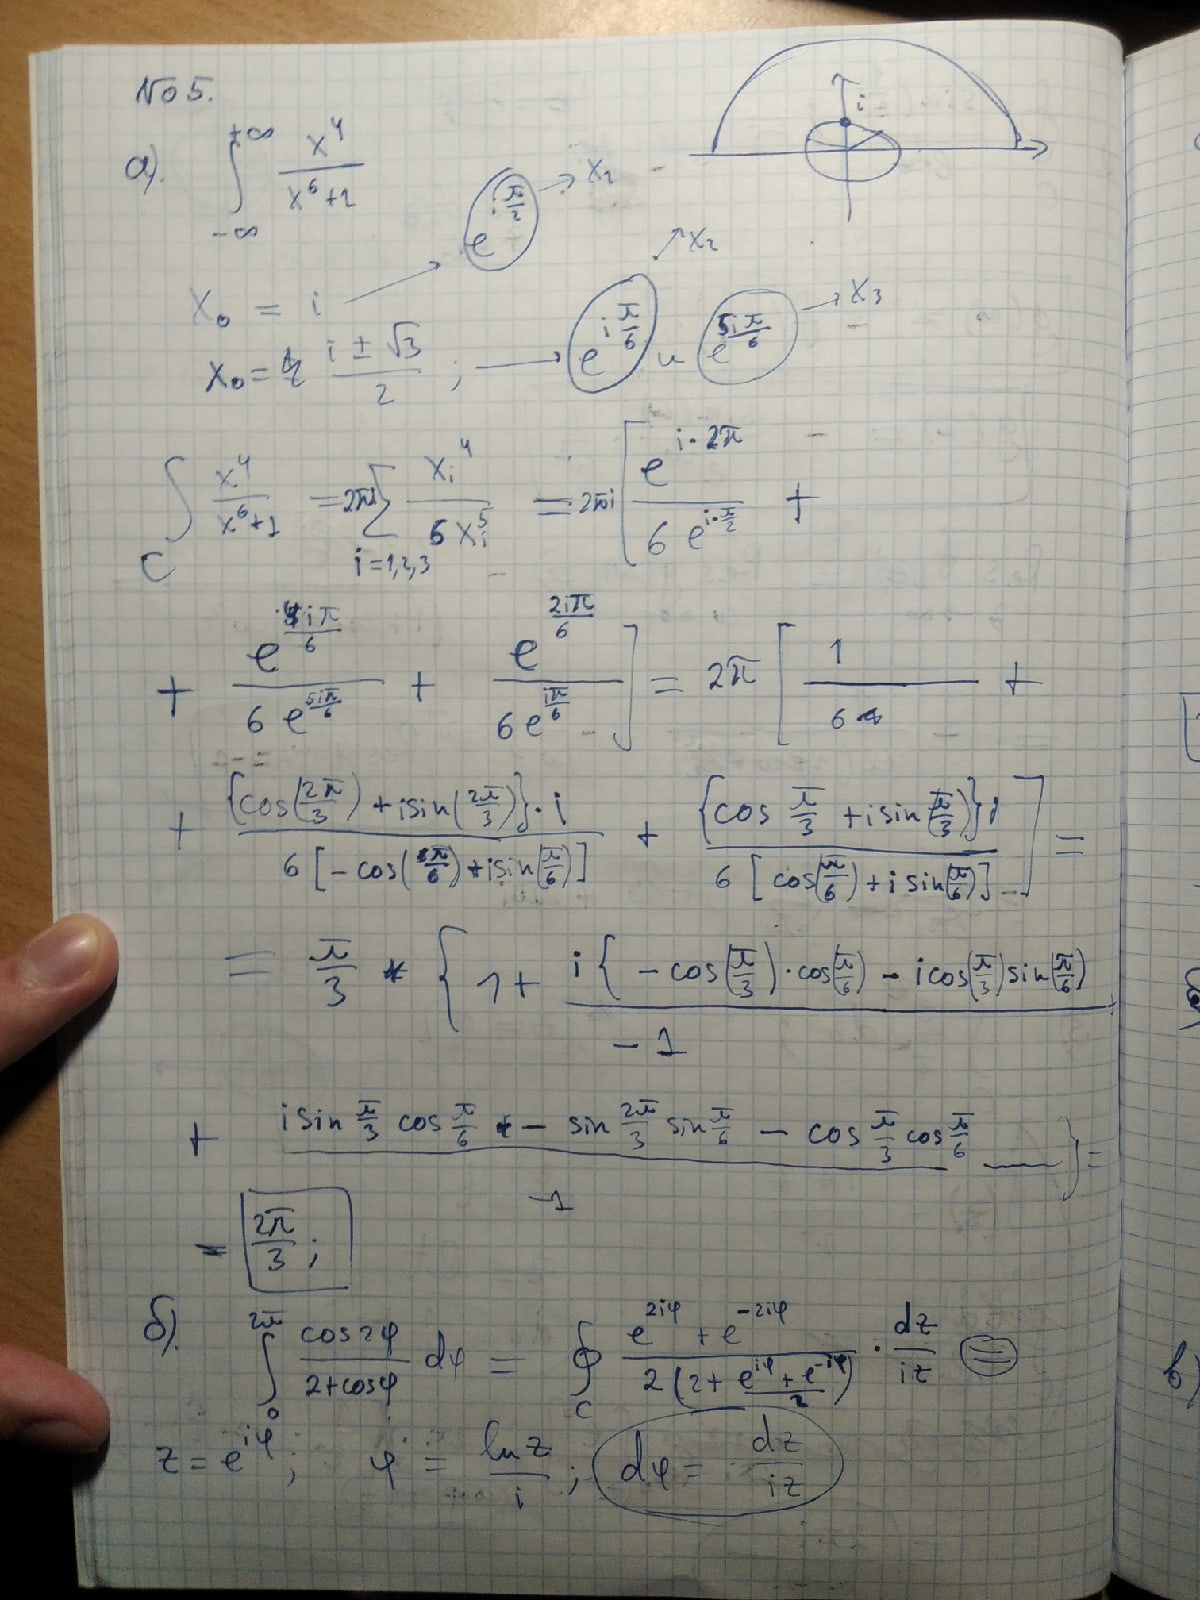 №5.
а). ∫_{-∞}^{+∞} x⁴/(x⁶+1)
i
x₀ = i → e^{iπ/2} → x₁
x₀ = (i ± √3)/2 ; → e^{iπ/6} → x₂ и e^{5iπ/6} → x₃
∫_C x⁴/(x⁶+1) = 2πi Σ_{i=1,2,3} x_i⁴/(6x_i⁵) = 2πi [ e^{i·2π}/(6e^{i·π/2}) +
+ e^{4iπ/6}/(6e^{5iπ/6}) + e^{2iπ/6}/(6e^{iπ/6}) ] = 2π [ 1/6 +
+ {cos(2π/3) + i sin(2π/3)}·i / 6[-cos(π/6) + i sin(π/6)] + {cos π/3 + i sin(π/3)}i / 6[cos(π/6) + i sin(π/6)] ] =
= π/3 * { 1 + i{ -cos(π/3)·cos(π/6) - i cos(π/3) sin(π/6) / -1
+ i sin π/3 cos π/6 - sin 2π/3 sin π/6 - cos π/3 cos π/6 / -1 } =
= 2π/3 ;
б). ∫_0^{2π} cos2φ/(2+cosφ) dφ = ∮_C (e^{2iφ} + e^{-2iφ})/(2(2 + (e^{iφ} + e^{-iφ})/2)) · dz/iz =
z = e^{iφ}; φ = ln z/i ; dφ = dz/iz
в)